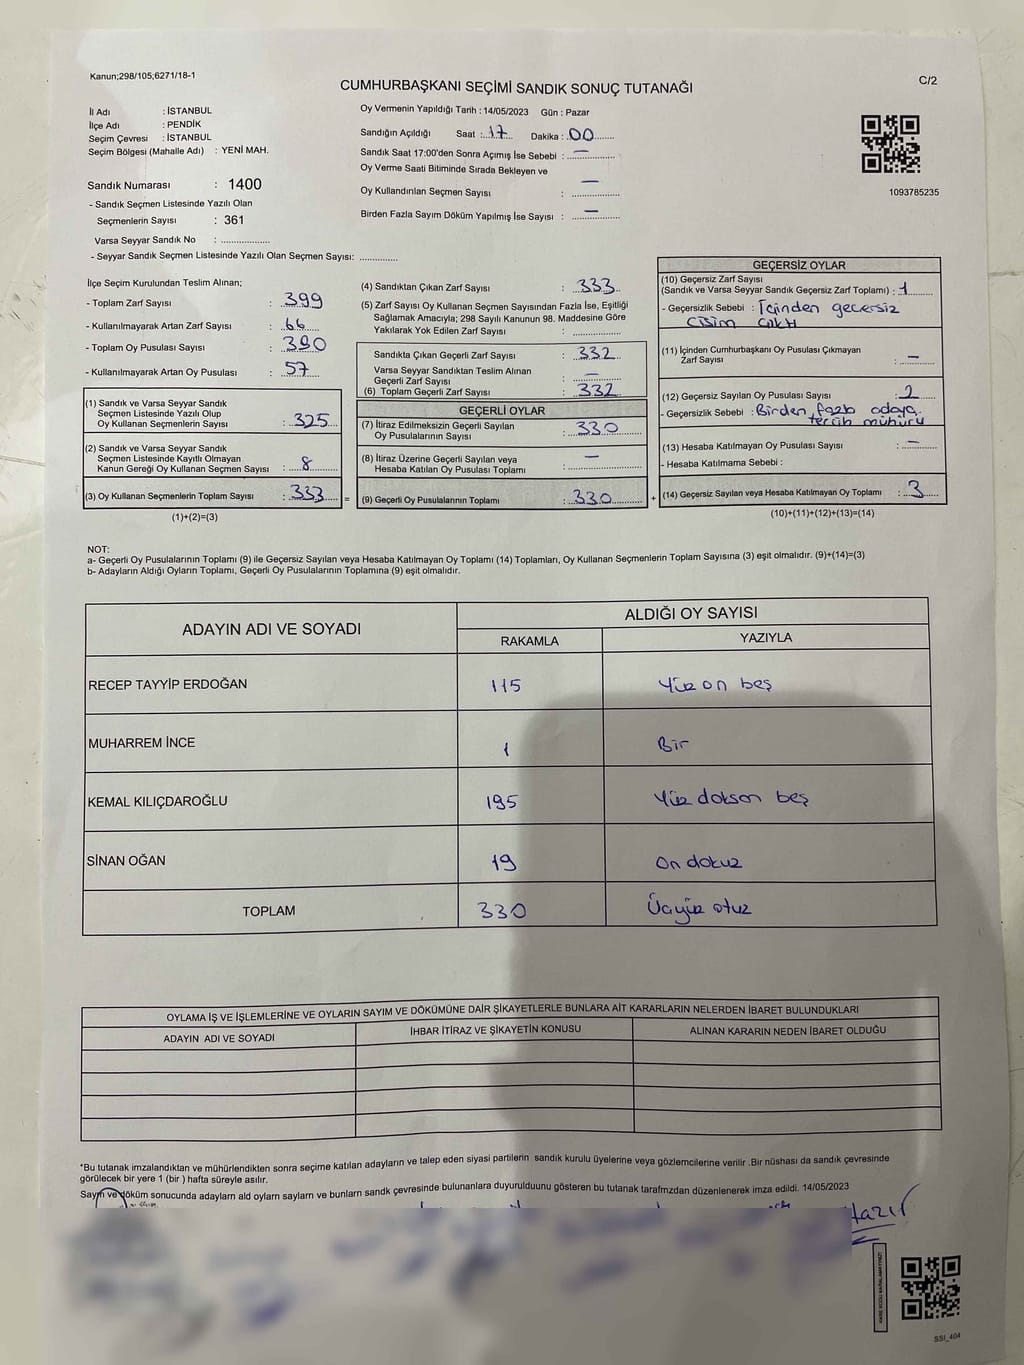 Kanun;298/105;6271/18-1
C/2
CUMHURBAŞKANI SEÇİMİ SANDIK SONUÇ TUTANAĞI
İl Adı : İSTANBUL
İlçe Adı : PENDİK
Seçim Çevresi : İSTANBUL
Seçim Bölgesi (Mahalle Adı) : YENİ MAH.
Sandık Numarası : 1400
- Sandık Seçmen Listesinde Yazılı Olan
Seçmenlerin Sayısı : 361
Varsa Seyyar Sandık No : ...................
- Seyyar Sandık Seçmen Listesinde Yazılı Olan Seçmen Sayısı: ..............
Oy Vermenin Yapıldığı Tarih : 14/05/2023 Gün : Pazar
Sandığın Açıldığı Saat : 17 Dakika : 00
Sandık Saat 17:00'den Sonra Açımış İse Sebebi : —
Oy Verme Saati Bitiminde Sırada Bekleyen ve
Oy Kullandırılan Seçmen Sayısı : —
Birden Fazla Sayım Döküm Yapılmış İse Sayısı : —
1093785235
İlçe Seçim Kurulundan Teslim Alınan;
- Toplam Zarf Sayısı : 399
- Kullanılmayarak Artan Zarf Sayısı : 66
- Toplam Oy Pusulası Sayısı : 390
- Kullanılmayarak Artan Oy Pusulası : 57
(1) Sandık ve Varsa Seyyar Sandık
Seçmen Listesinde Yazılı Olup
Oy Kullanan Seçmenlerin Sayısı : 325
(2) Sandık ve Varsa Seyyar Sandık
Seçmen Listesinde Kayıtlı Olmayan
Kanun Gereği Oy Kullanan Seçmen Sayısı : 8
(3) Oy Kullanan Seçmenlerin Toplam Sayısı : 333 =
(1)+(2)=(3)
(4) Sandıktan Çıkan Zarf Sayısı : 333
(5) Zarf Sayısı Oy Kullanan Seçmen Sayısından Fazla İse, Eşitliği
Sağlamak Amacıyla; 298 Sayılı Kanunun 98. Maddesine Göre
Yakılarak Yok Edilen Zarf Sayısı : ..............
Sandıkta Çıkan Geçerli Zarf Sayısı : 332
Varsa Seyyar Sandıktan Teslim Alınan
Geçerli Zarf Sayısı : —
(6) Toplam Geçerli Zarf Sayısı : 332
GEÇERLİ OYLAR
(7) İtiraz Edilmeksizin Geçerli Sayılan
Oy Pusulalarının Sayısı : 330
(8) İtiraz Üzerine Geçerli Sayılan veya
Hesaba Katılan Oy Pusulası Toplamı : —
(9) Geçerli Oy Pusulalarının Toplamı : 330 +
GEÇERSİZ OYLAR
(10) Geçersiz Zarf Sayısı
(Sandık ve Varsa Seyyar Sandık Geçersiz Zarf Toplamı) : 1
- Geçersizlik Sebebi : İçinden geçersiz
cisim çıktı
(11) İçinden Cumhurbaşkanı Oy Pusulası Çıkmayan
Zarf Sayısı : —
(12) Geçersiz Sayılan Oy Pusulası Sayısı : 2
- Geçersizlik Sebebi : Birden fazla adaya
tercih mühürü
(13) Hesaba Katılmayan Oy Pusulası Sayısı : —
- Hesaba Katılmama Sebebi :
(14) Geçersiz Sayılan veya Hesaba Katılmayan Oy Toplamı : 3
(10)+(11)+(12)+(13)=(14)
NOT:
a- Geçerli Oy Pusulalarının Toplamı (9) ile Geçersiz Sayılan veya Hesaba Katılmayan Oy Toplamı (14) Toplamları, Oy Kullanan Seçmenlerin Toplam Sayısına (3) eşit olmalıdır. (9)+(14)=(3)
b- Adayların Aldığı Oyların Toplamı, Geçerli Oy Pusulalarının Toplamına (9) eşit olmalıdır.
ADAYIN ADI VE SOYADI ALDIĞI OY SAYISI
RAKAMLA YAZIYLA
RECEP TAYYİP ERDOĞAN 115 Yüz on beş
MUHARREM İNCE 1 Bir
KEMAL KILIÇDAROĞLU 195 Yüz doksan beş
SİNAN OĞAN 19 On dokuz
TOPLAM 330 Üçyüz otuz
OYLAMA İŞ VE İŞLEMLERİNE VE OYLARIN SAYIM VE DÖKÜMÜNE DAİR ŞİKAYETLERLE BUNLARA AİT KARARLARIN NELERDEN İBARET BULUNDUKLARI
ADAYIN ADI VE SOYADI İHBAR İTİRAZ VE ŞİKAYETİN KONUSU ALINAN KARARIN NEDEN İBARET OLDUĞU
*Bu tutanak imzalandıktan ve mühürlendikten sonra seçime katılan adayların ve talep eden siyasi partilerin sandık kurulu üyelerine veya gözlemcilerine verilir .Bir nüshası da sandık çevresinde
görülecek bir yere 1 (bir ) hafta süreyle asılır.
Sayım ve döküm sonucunda adayların ald oyların sayların ve bunların sandk çevresinde bulunanlara duyurulduunu gösteren bu tutanak tarafmzdan düzenlenerek imza edildi. 14/05/2023
SSI_404